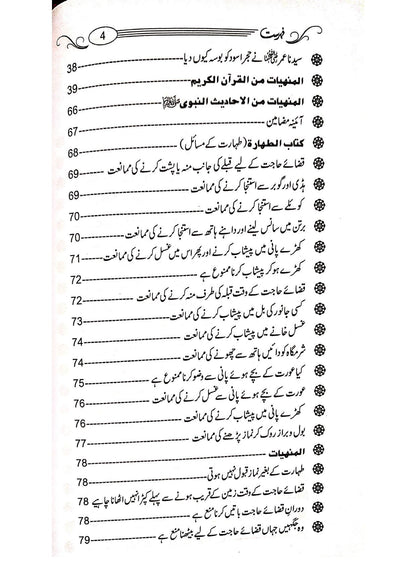 فہرست 4
سیدنا عمر رضی اللہ عنہ نے حجر اسود کو بوسہ کیوں دیا 38
المنهيات من القرآن الكريم 39
المنهيات من الاحاديث النبوى ﷺ 66
آئینہ مضامین 67
كتاب الطهارة (طہارت کے مسائل) 68
قضائے حاجت کے لیے قبلے کی جانب منہ یا پشت کرنے کی ممانعت 69
ہڈی اور گوبر سے استنجا کرنے کی ممانعت 69
کوئلے سے استنجا کرنے کی ممانعت 70
برتن میں سانس لینے اور داہنے ہاتھ سے استنجا کرنے کی ممانعت 70
کھڑے پانی میں پیشاب کرنے اور پھر اس میں غسل کرنے کی ممانعت 71
کھڑے ہو کر پیشاب کرنا ممنوع ہے 72
قضائے حاجت کے وقت قبلہ کی طرف منہ کرنے کی ممانعت 72
کسی جانور کی بل میں پیشاب کرنے کی ممانعت 73
غسل خانے میں پیشاب کرنے کی ممانعت 74
شرمگاہ کو دائیں ہاتھ سے چھونے کی ممانعت 74
کیا عورت کے بچے ہوئے پانی سے وضو کرنا ممنوع ہے 75
عورت کے بچے ہوئے پانی سے غسل کرنے کی ممانعت 76
کھڑے پانی میں پیشاب کرنے کی ممانعت 76
بول و براز روک کر نماز پڑھنے کی ممانعت 77
المنهيات 78
طہارت کے بغیر نماز قبول نہیں ہوتی 78
قضائے حاجت کے وقت زمین کے قریب ہونے سے پہلے کپڑا نہیں اٹھانا چاہیے 78
دوران قضائے حاجت باتیں کرنا منع ہے 78
وہ جگہیں جہاں قضائے حاجت کے لیے بیٹھنا منع ہے 79